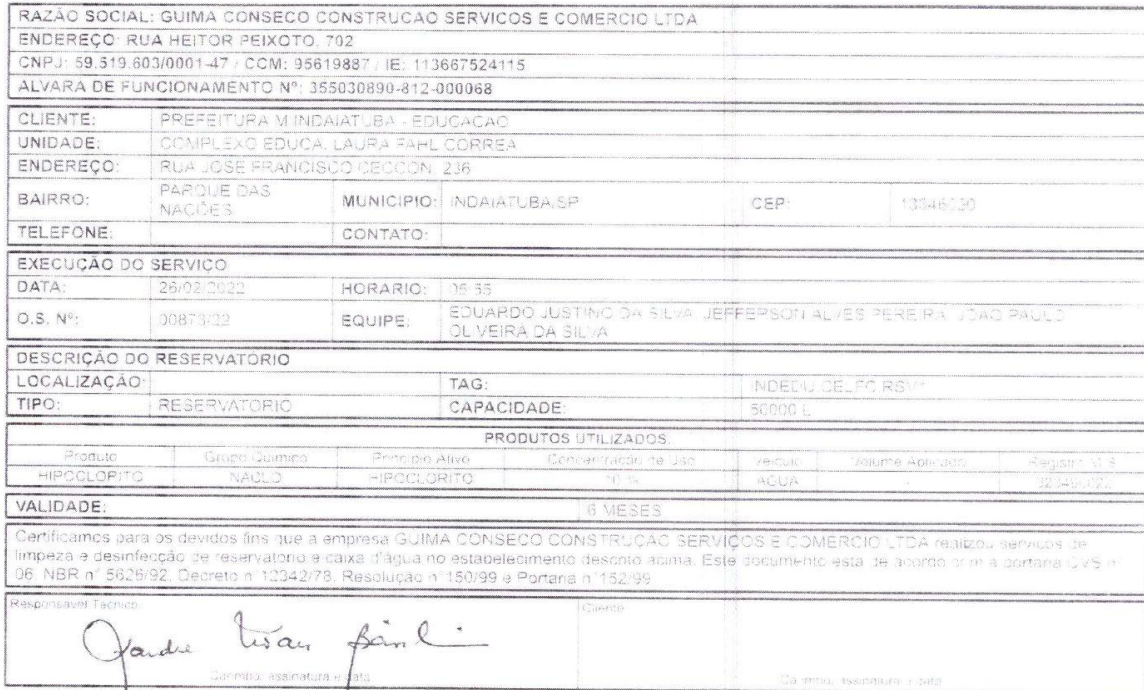 RAZÃO SOCIAL: GUIMA CONSECO CONSTRUCAO SERVICOS E COMERCIO LTDA
ENDEREÇO: RUA HEITOR PEIXOTO, 702
CNPJ: 59.519.603/0001-47 / CCM: 95619887 / IE: 113667524115
ALVARA DE FUNCIONAMENTO Nº: 355030890-812-000068
CLIENTE: PREFEITURA M INDAIATUBA - EDUCAÇAO
UNIDADE: COMPLEXO EDUCA. LAURA FAHL CORREA
ENDEREÇO: RUA JOSE FRANCISCO CECCON, 236
BAIRRO: PARQUE DAS NAÇÕES MUNICIPIO: INDAIATUBA/SP CEP:
TELEFONE: CONTATO:
EXECUÇÃO DO SERVIÇO
DATA: 26/02/2022 HORARIO:
O.S. Nº: 00873/22 EQUIPE: EDUARDO JUSTINO DA SILVA, JEFFERSON ALVES PEREIRA, JOAO PAULO
OLIVEIRA DA SILVA
DESCRIÇÃO DO RESERVATÓRIO
LOCALIZAÇÃO: TAG:
TIPO: RESERVATORIO CAPACIDADE: 50000 L
PRODUTOS UTILIZADOS
Produto Grupo Quimico Principio Ativo Concentração de Uso Veiculo Volume Aplicado Registro M.S.
HIPOCLORITO NACLO HIPOCLORITO 10 % AGUA -
VALIDADE: 6 MESES
Certificamos para os devidos fins que a empresa GUIMA CONSECO CONSTRUCAO SERVIÇOS E COMERCIO LTDA realizou serviços de
limpeza e desinfecção de reservatorio e caixa d'água no estabelecimento descrito acima. Este documento esta de acordo com a portaria CVS n°
06, NBR n° 5626/92, Decreto n° 12342/78, Resolução n°150/99 e Portaria n°152/99
Responsavel Tecnico: Cliente
Carimbo, assinatura e data Carimbo, assinatura e data